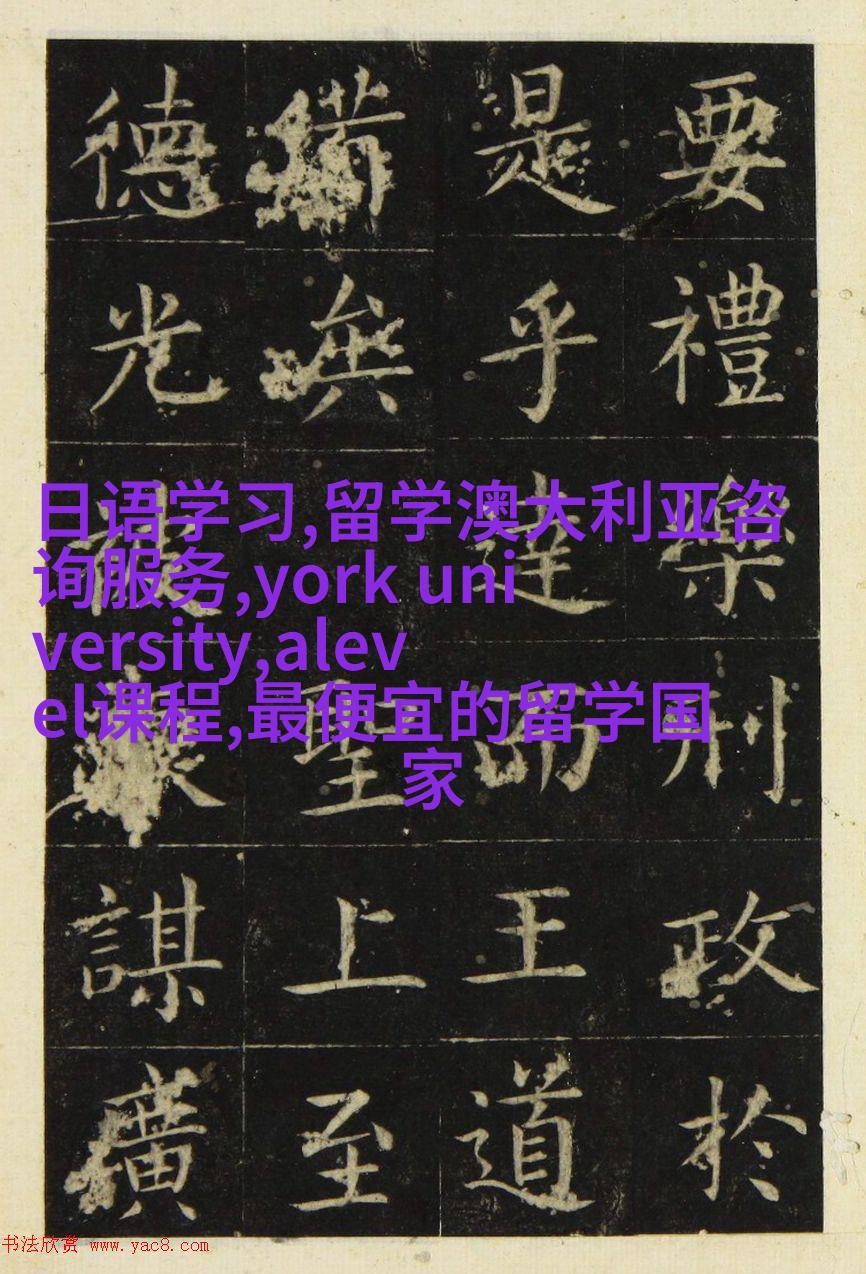 要禮樂刑政於
是乎達而王道
聖上至
德光被
謀廣
日语学习,留学澳大利亚咨
询服务,york uni
versity,alev
el课程,最便宜的留学国
家
书法欣赏 www.yac8.com